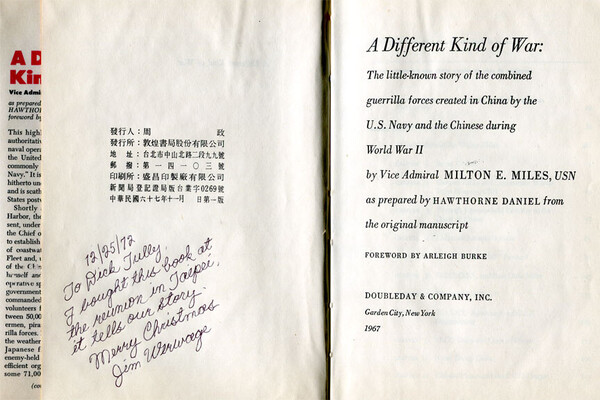 A D
Kin
Vice Admi
as prepared
HAWTHO
foreword by
This high
authoritativ
naval oper
the United
commonly
Navy." It is
hitherto un
and is
States post
Shortly
Harbor, the
sent, under
the Chief o
to establish
of coastwat
Fleet and,
of the Chi
himself and
operative sp
government
commanded
volunteers f
tween 50,00
ermen, pira
rilla forces.
the weather
Japanese f
enemy-held
efficient org
some 71,00
(co
發行人：周 政
發行所：敦煌書局股份有限公司
地 址：台北市中山北路二段九九號
郵 撥：第一四一〇三號
印刷所：盛昌印製廠有限公司
新聞局登記證局版台業字0269號
中華民國六十七年十一月 日第一版
12/25/72
To Dick Tully,
I bought this book at
the reunion in Taipei,
it tells our story.
Merry Christmas
Jim Werwage
A Different Kind of War:
The little-known story of the combined
guerrilla forces created in China by the
U.S. Navy and the Chinese during
World War II
by Vice Admiral MILTON E. MILES, USN
as prepared by HAWTHORNE DANIEL from
the original manuscript
FOREWORD BY ARLEIGH BURKE
DOUBLEDAY & COMPANY, INC.
Garden City, New York
1967